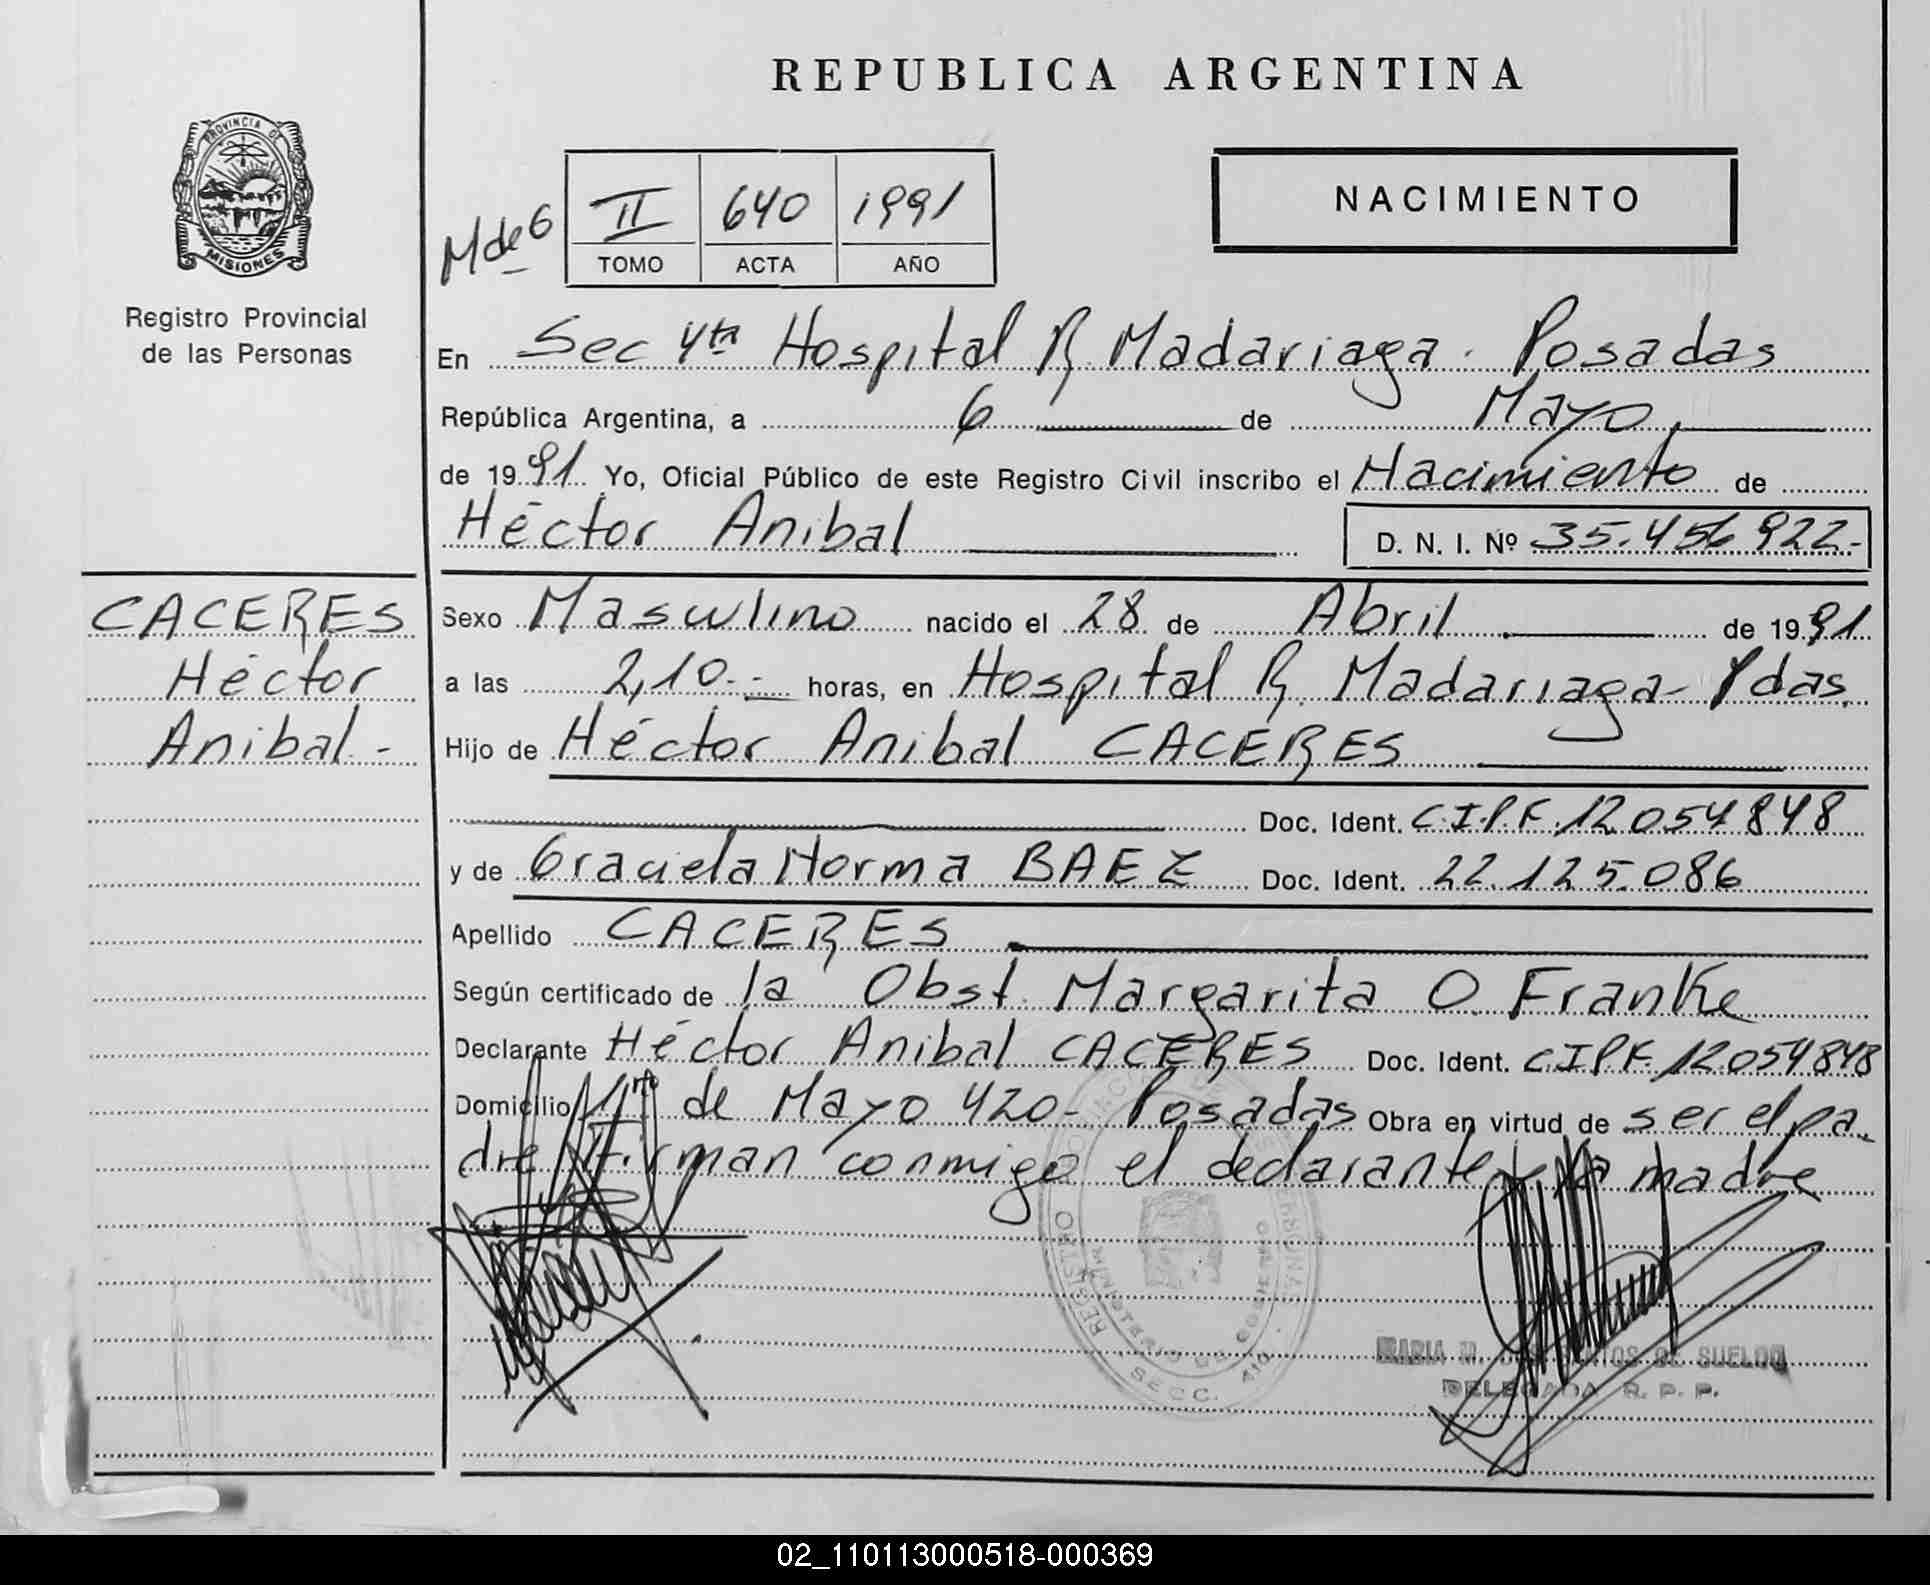 REPUBLICA ARGENTINA
PROVINCIA DE
MISIONES
Registro Provincial
de las Personas
M de 6
II 640 1991
TOMO ACTA AÑO
NACIMIENTO
En Sec 4ta Hospital R. Madariaga. Posadas
República Argentina, a 6 de Mayo
de 1991 Yo, Oficial Público de este Registro Civil inscribo el Nacimiento de
Héctor Anibal D. N. I. Nº 35.456.922.-
CACERES
Héctor
Anibal.-
Sexo Masculino nacido el 28 de Abril de 1991
a las 2,10.- horas, en Hospital R. Madariaga- Pdas.
Hijo de Héctor Anibal CACERES
Doc. Ident. C.I.P.F. 12.054848
y de Graciela Norma BAEZ Doc. Ident. 22.125.086
Apellido CACERES
Según certificado de la Obst. Margarita O. Franke
Declarante Héctor Anibal CACERES Doc. Ident. C.I.P.F. 12.054848
Domicilio 1ro de Mayo 420- Posadas Obra en virtud de ser el pa-
dre Firman conmigo el declarante y la madre
REGISTRO
SECC. 4ta.
MARIA M. DOS SANTOS DE SUELDO
DELEGADA R. P. P.
02_110113000518-000369